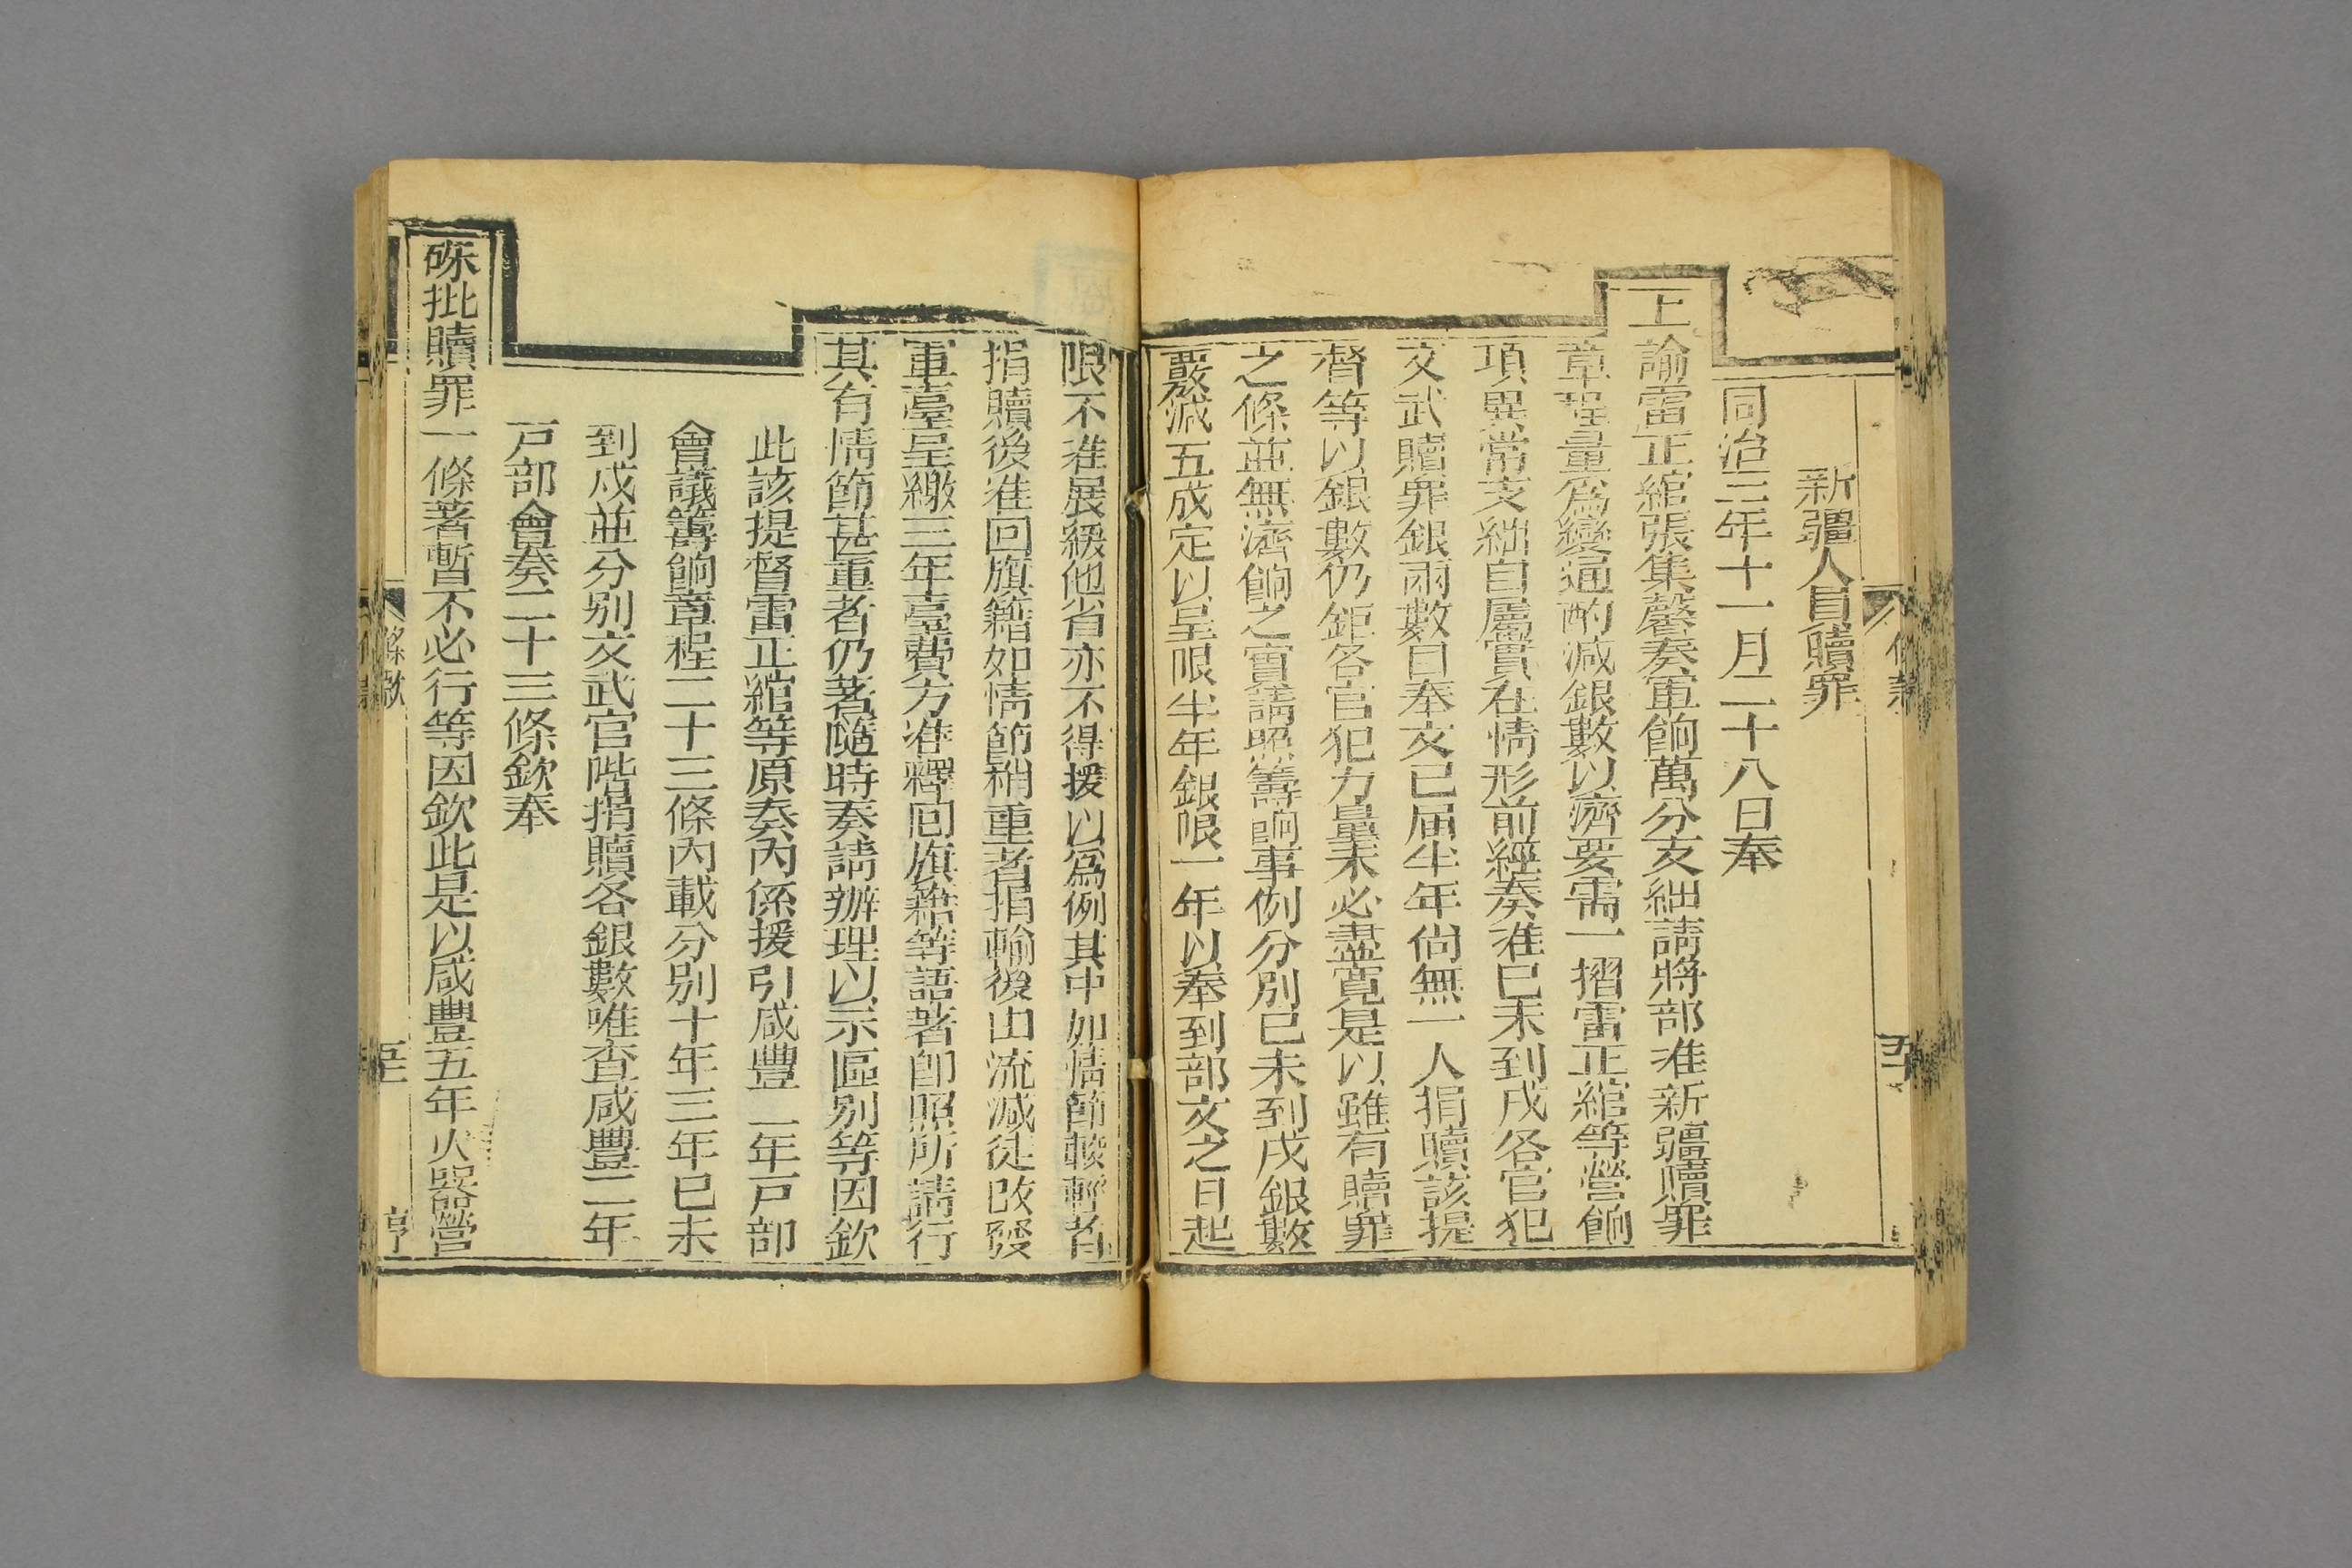 新疆人員贖罪
同治三年十一月二十八日奉
上諭雷正綰張集馨奏軍餉萬分支絀請將部准新疆贖罪
章程量爲變通酌減銀數以濟要需一摺雷正綰等營餉
項異常支絀自屬實在情形前經奏准已未到戍各官犯
文武贖罪銀兩數目奉文已屆半年尙無一人捐贖該提
督等以銀數仍鉅各官犯力量未必盡寬是以雖有贖罪
之條並無濟餉之實請照籌餉事例分別已未到戍銀數
覈減五成定以呈限半年銀限一年以奉到部文之日起
限不准展緩他省亦不得援以爲例其中如情節較輕者
捐贖後准回旗籍如情節稍重者捐輸後由流減徒改發
軍臺呈繳三年臺費方准釋囘旗籍等語著卽照所請行
其有情節甚重者仍著隨時奏請辦理以示區別等因欽
此該提督雷正綰等原奏內係援引咸豐二年戸部
會議籌餉章程二十三條內載分別十年三年已未
到戍並分別文武官階捐贖各銀數唯查咸豐二年
戸部會奏二十三條欽奉
硃批贖罪一條著暫不必行等因欽此是以咸豐五年火器營
條款